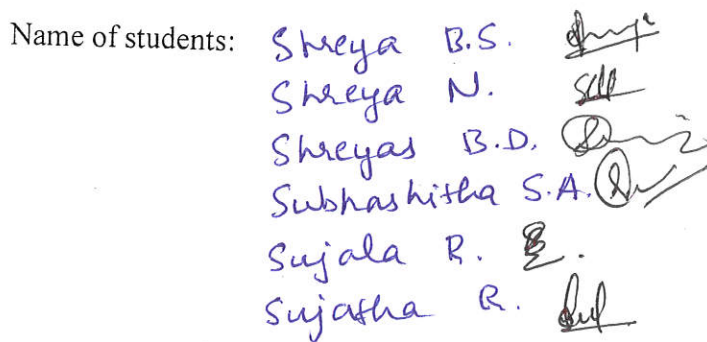 Name of students: Shreya B.S.
Shreya N.
Shreyas B.D.
Subhashitha S.A.
Sujala R.
Sujatha R.